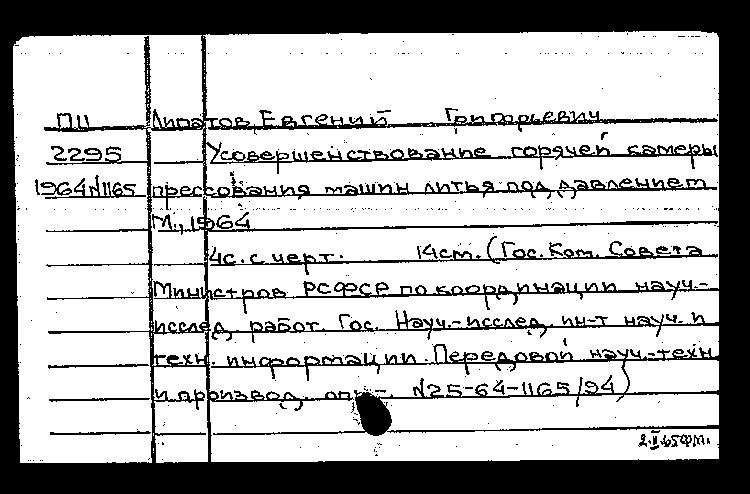 П11 Липатов, Евгений Григорьевич
2295 Усовершенствование горячей камеры
1964 N1165 прессования машин литья под давлением
М., 1964
4с. с черт. 14см. (Гос. Ком. Совета
Министров РСФСР по координации науч.-
исслед. работ. Гос. Науч.-исслед. ин-т науч. и
техн. информации. Передовой науч.-техн.
и производ. опыт. N25-64-1165/94)